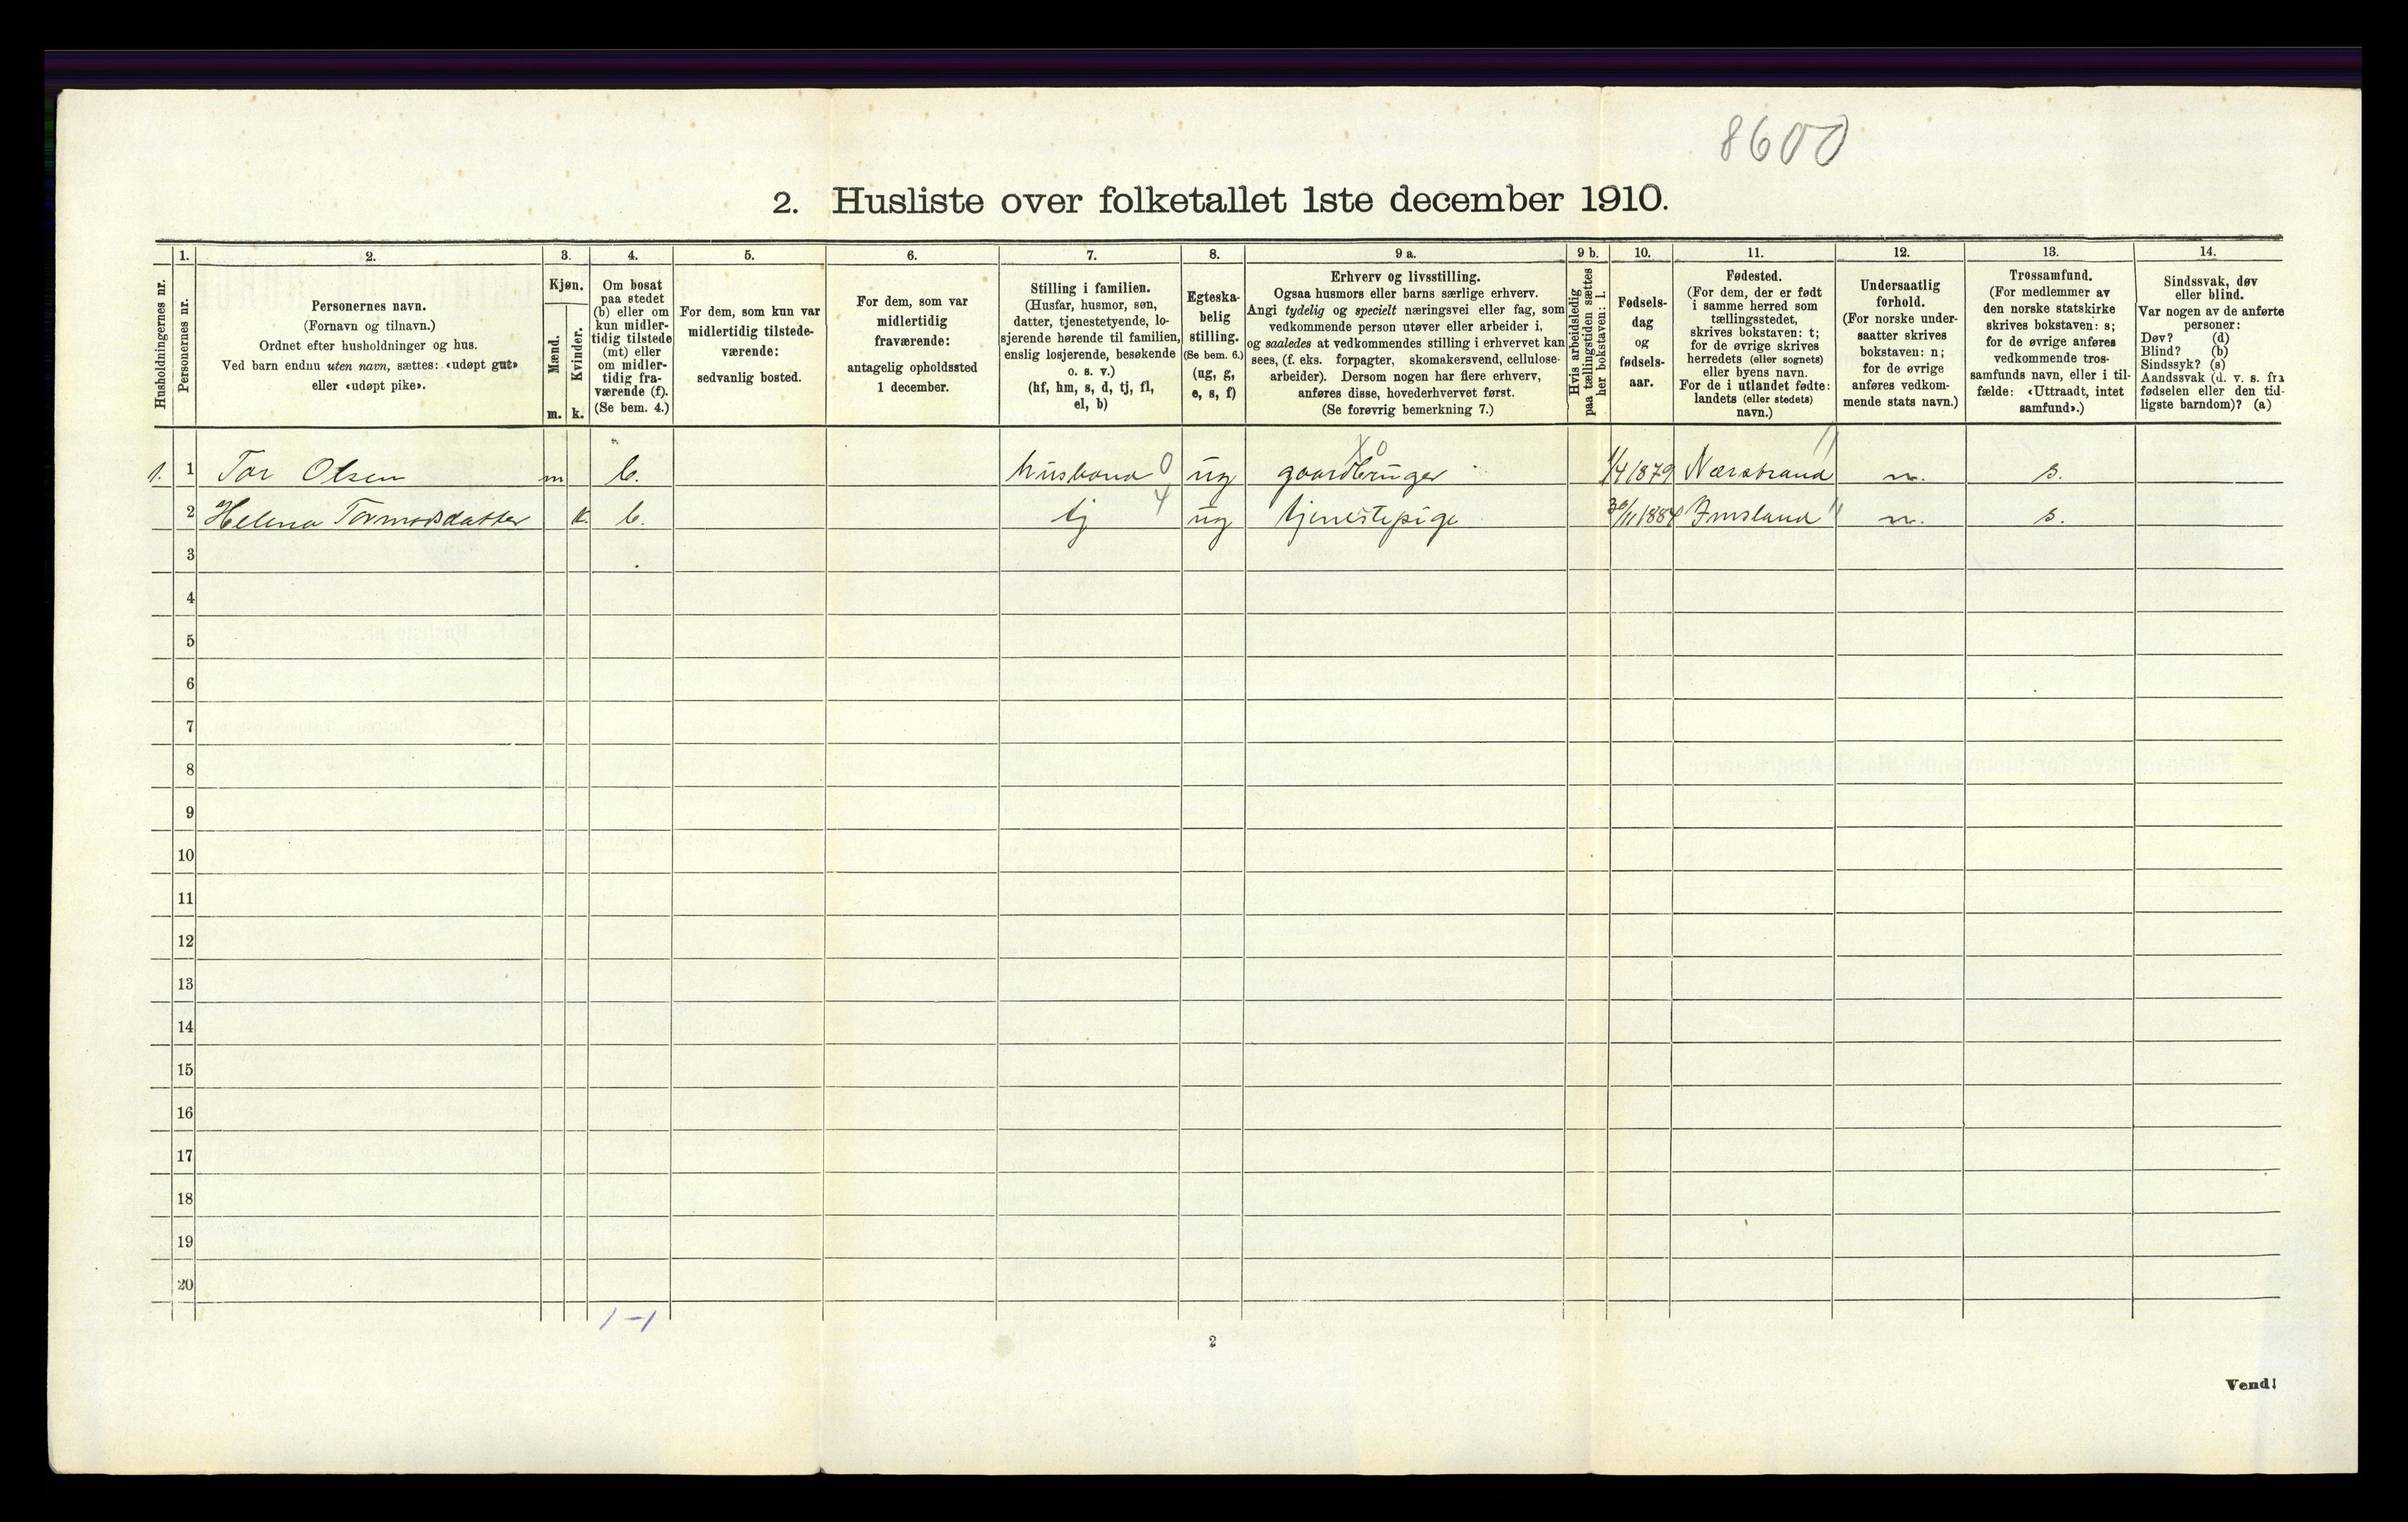 8600
2. Husliste over folketallet 1ste december 1910.
Husholdningernes nr.
1.
Personernes nr.
2.
Personernes navn.
(Fornavn og tilnavn.)
Ordnet efter husholdninger og hus.
Ved barn endnu uten navn, sættes: «udøpt gut»
eller «udøpt pike».
3.
Kjøn.
Mænd.
m.
Kvinder.
k.
4.
Om bosat
paa stedet
(b) eller om
kun midler-
tidig tilstede
(mt) eller
om midler-
tidig fra-
værende (f).
(Se bem. 4.)
5.
For dem, som kun var
midlertidig tilstede-
værende:
sedvanlig bosted.
6.
For dem, som var
midlertidig
fraværende:
antagelig opholdssted
1 december.
7.
Stilling i familien.
(Husfar, husmor, søn,
datter, tjenestetyende, lo-
sjerende hørende til familien,
enslig losjerende, besøkende
o. s. v.)
(hf, hm, s, d, tj, fl,
el, b)
8.
Egteska-
belig
stilling.
(Se bem. 6.)
(ug, g,
e, s, f)
9 a.
Erhverv og livsstilling.
Ogsaa husmors eller barns særlige erhverv.
Angi tydelig og specielt næringsvei eller fag, som
vedkommende person utøver eller arbeider i,
og saaledes at vedkommendes stilling i erhvervet kan
sees, (f. eks. forpagter, skomakersvend, cellulose-
arbeider). Dersom nogen har flere erhverv,
anføres disse, hovederhvervet først.
(Se forøvrig bemerkning 7.)
9 b.
Hvis arbeidsledig
paa tællingstiden sættes
her bokstaven: l.
10.
Fødsels-
dag
og
fødsels-
aar.
11.
Fødested.
(For dem, der er født
i samme herred som
tællingsstedet,
skrives bokstaven: t;
for de øvrige skrives
herredets (eller sognets)
eller byens navn.
For de i utlandet fødte:
landets (eller stedets)
navn.)
12.
Undersaatlig
forhold.
(For norske under-
saatter skrives
bokstaven: n;
for de øvrige
anføres vedkom-
mende stats navn.)
13.
Trossamfund.
(For medlemmer av
den norske statskirke
skrives bokstaven: s;
for de øvrige anføres
vedkommende tros-
samfunds navn, eller i til-
fælde: «Uttraadt, intet
samfund».)
14.
Sindssvak, døv
eller blind.
Var nogen av de anførte
personer:
Døv? (d)
Blind? (b)
Sindssyk? (s)
Aandssvak (d. v. s. fra
fødselen eller den tid-
ligste barndom)? (a)
1. 1 Tor Olsen m b. husbond 0 ug gaardbruger X0 1/4 1879 Nærstrand 11 n. s.
2 Helena Tormodsdatter k. b. tj 4 ug tjenestepige 30/11 1884 Imsland 11 n. s.
3
4
5
6
7
8
9
10
11
12
13
14
15
16
17
18
19
20
1-1
2
Vend!